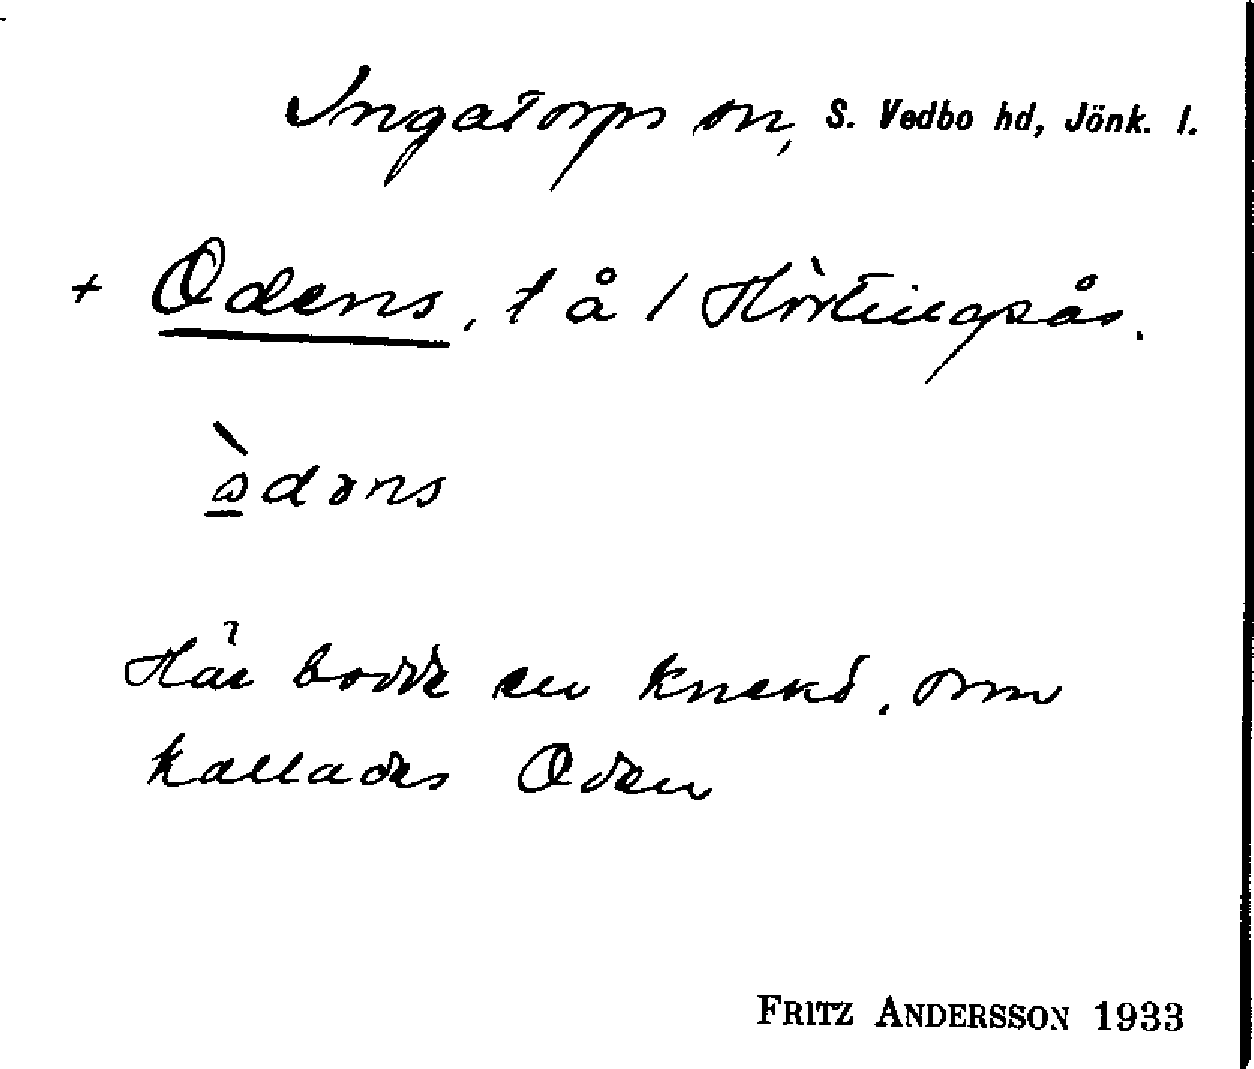 Ingatorps sn, S. Vedbo hd, Jönk. l.
+ Odens, t å / Hörtingsås.
ò̱dəns
Här bodde en knekt, som
kallades Oden
FRITZ ANDERSSON 1933